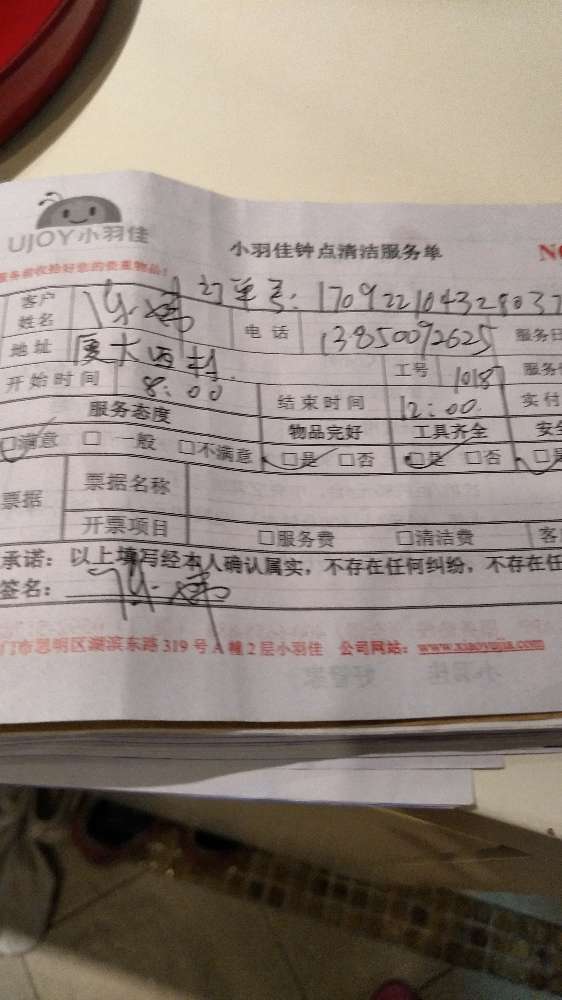 UJOY小羽佳
小羽佳钟点清洁服务单 N
服务前收拾好您的贵重物品!
客户姓名 订单号: 17092210432803
电话 13850092625 服务日
地址 厦大西村 工号 1018 服务
开始时间 8:00 结束时间 12:00 实付
服务态度 物品完好 工具齐全 安
□满意 □一般 □不满意 □是 □否 □是 □否 □是
票据 票据名称
开票项目 □服务费 □清洁费 客
承诺: 以上填写经本人确认属实, 不存在任何纠纷, 不存在任
签名:
门市思明区湖滨东路319号A幢2层小羽佳 公司网站: www.xiaoyujia.com